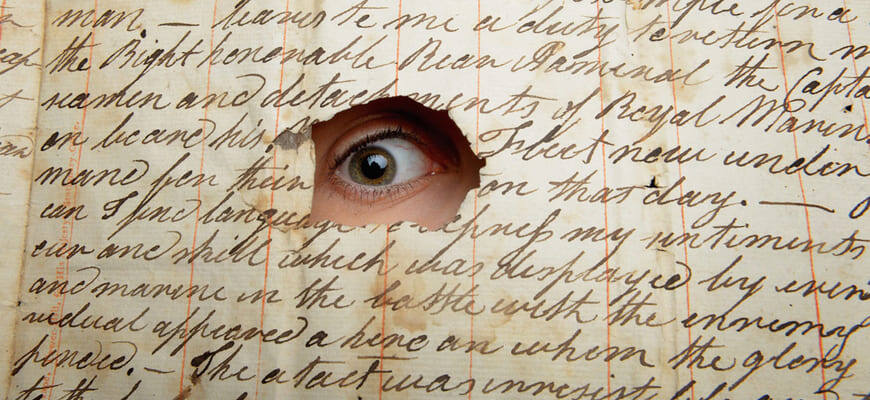 for a
man — leaves to me a duty to return m
the Right honorable Rear Adminal the Capta
seamen and detachments of Royal Marin
on board his Fleet now under
mand for their on that day. —
can I find language to express my sentiments
our and skill which was displayed by even
and marine in the battle with the ennemy
vidual appeared a hero on whom the glory
pended. — The atact was unresist